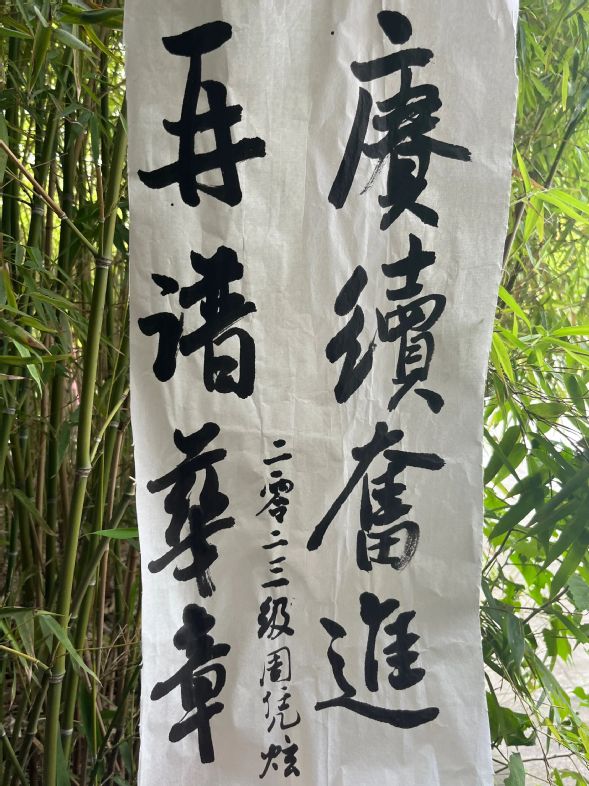 賡續奮進
再谱華章
二零二三级周凭炫